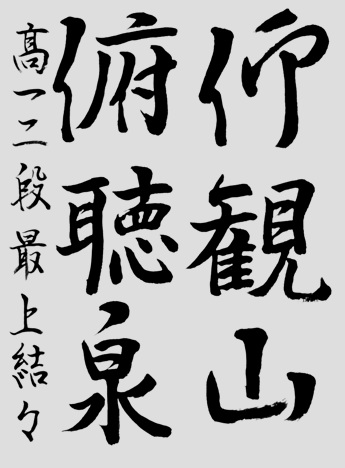 仰観山
俯聴泉
高一二段最上結々